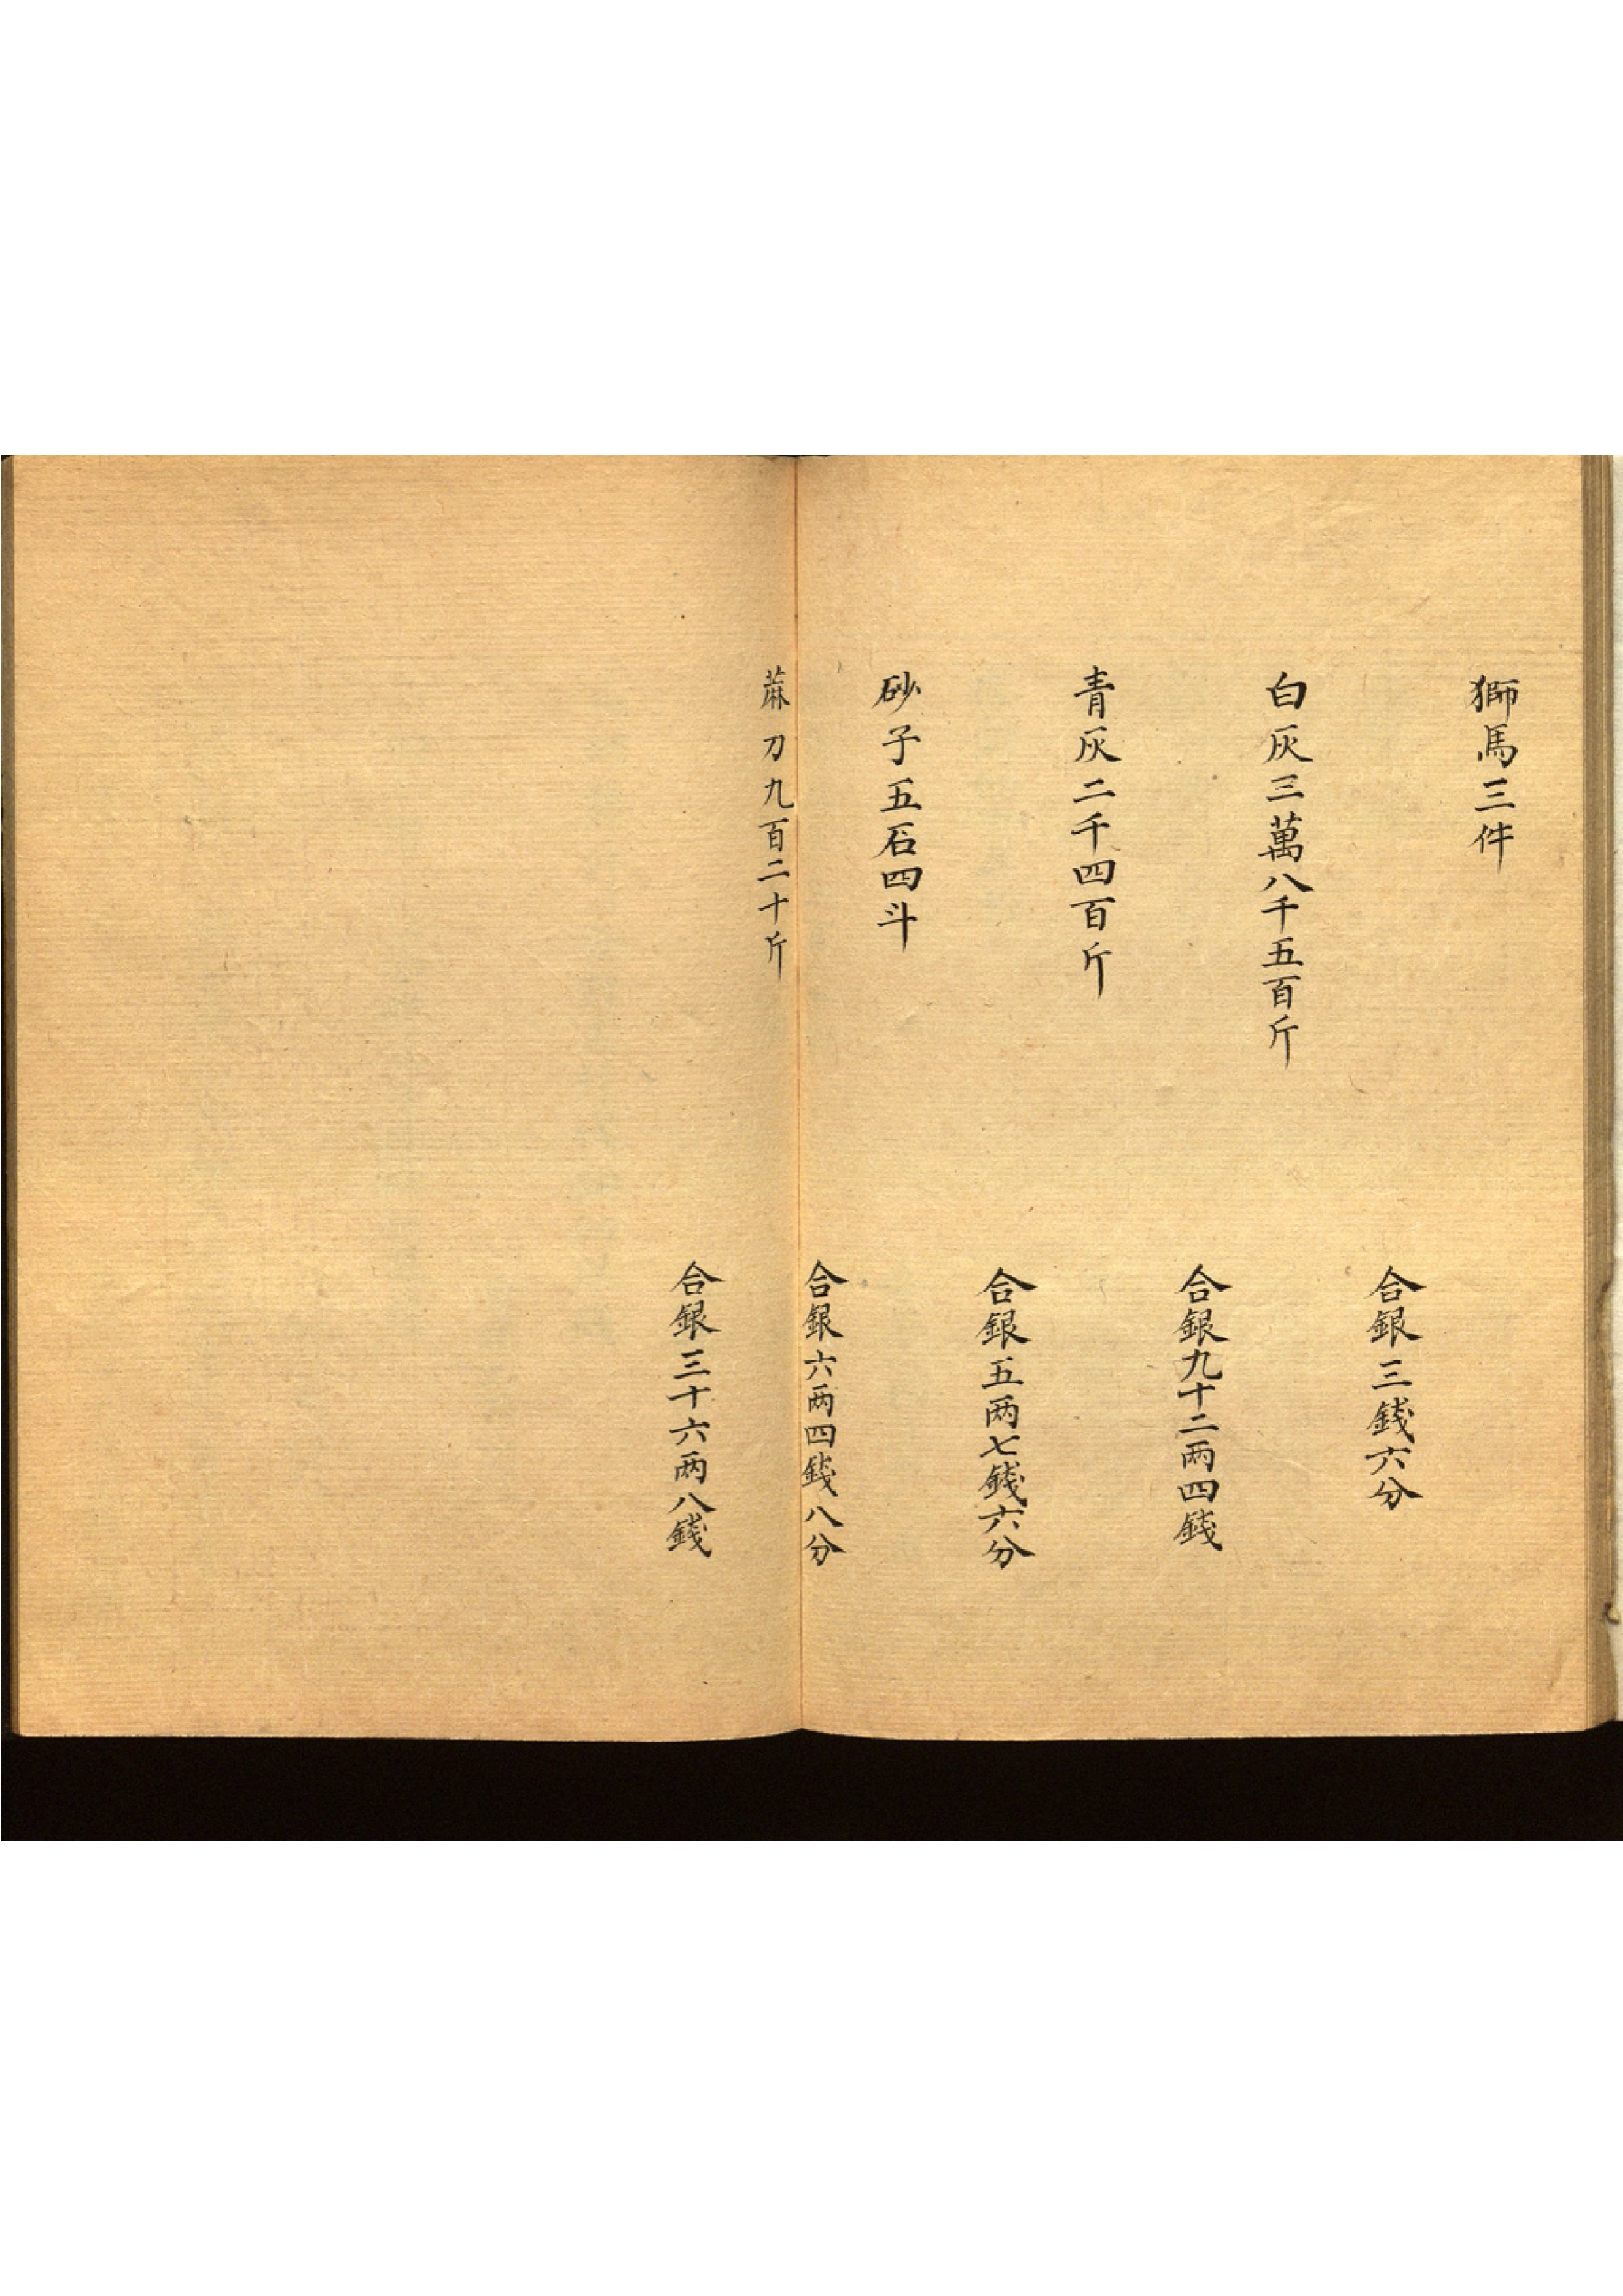 獅馬三件
合銀三錢六分
白灰三萬八千五百斤
合銀九十二两四錢
青灰二千四百斤
合銀五两七錢六分
砂子五石四斗
合銀六两四錢八分
蔴刀九百二十斤
合銀三十六两八錢